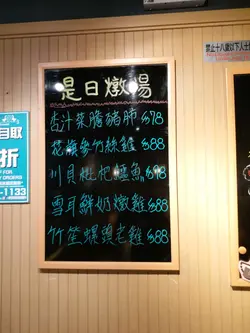 是日燉湯
杏汁菜膽豬肺 $78
花旗參竹絲雞 $88
川貝枇杷鱷魚 $98
雪耳鮮奶燉雞 $88
竹笙螺頭老雞 $88
禁止十八歲以下人士
自取
折
-1133